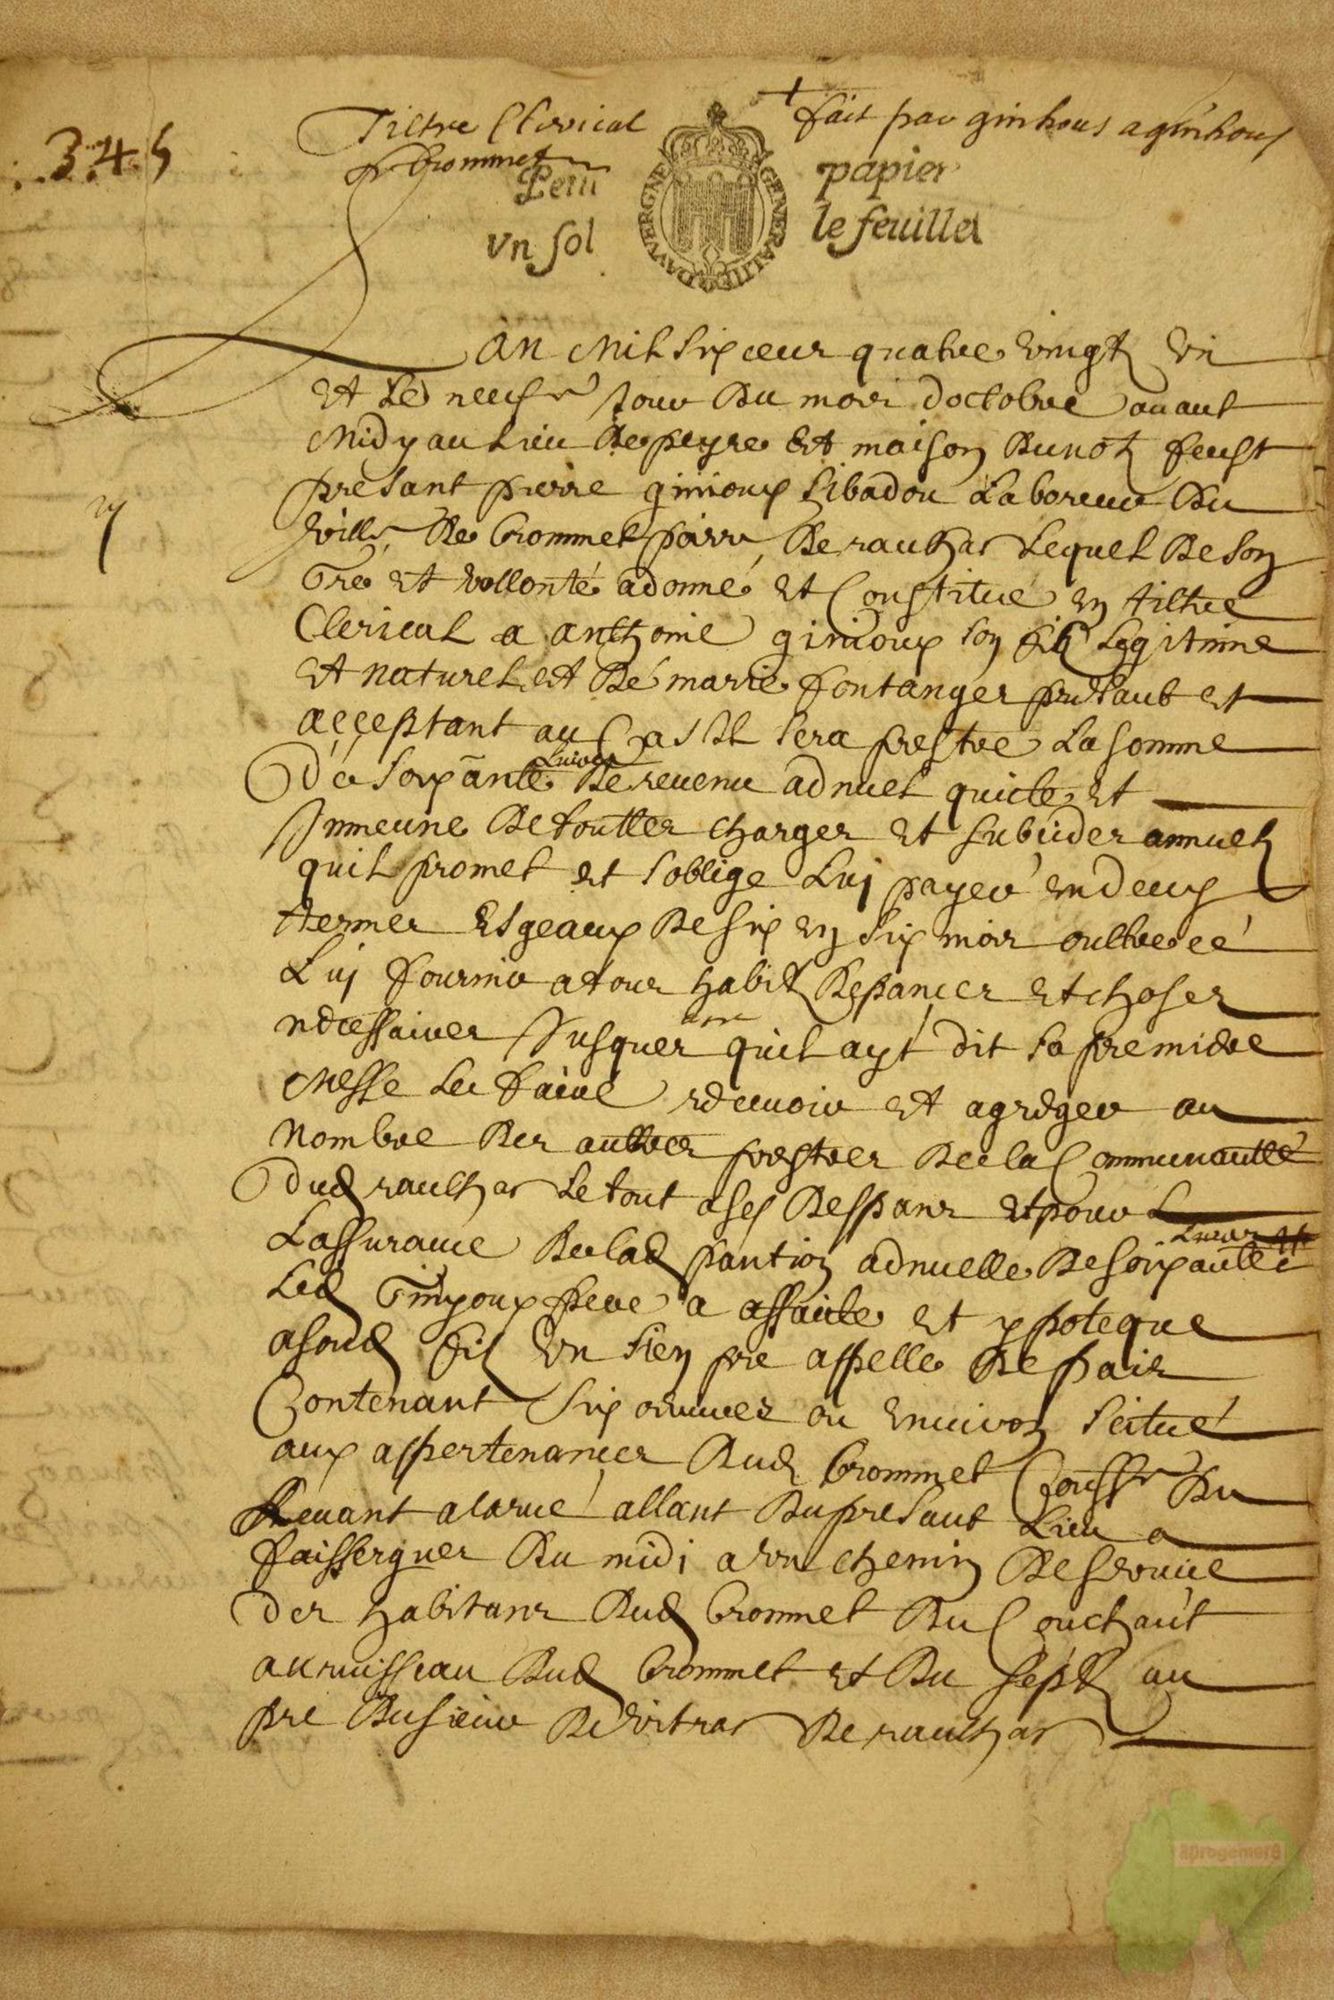 345
Tiltre Clerical
fait par ginhous a ginhous
de brommet
Petit papier
Vn sol le feuillet
GENERALITE D'AVVERGNE
Lan mil six cens quatre vingtz un
et le neufe jour du mois doctobre avant
midy au lieu de peyre et maison du notre feust
presant pierre ginioux libadou laboreur du
village de brommet parre de raulhac lequel de son
gre et vollonté a donné et constitué en tiltre
clerical a anthoine ginioux son filz legitime
et naturel et de marie fontanges presant et
acceptant au cas il sera prestre la somme
de soixante livres de revenu adnuel quicte et
immeune de touttes charges et subcides annuelz
quil promet et soblige luj payer en deux
termes esgeaux de six en six mois oultre ce
luj fournir atous habitz despances et choses
necessaires jusques quil ayt dit sa premiere
messe le faire recevoir et agreger au
nombre des autres prestres de la communautté
dud raulhac le tout a ses despans et pour
lassurance de lad pantion adnuelle de soixantte livres
led ginyoux pere a assise et ypoteque
a sond filz un sien pre appelle de pais
contenant six oeuvres ou enuiron scitué
aux appertenances dud brommet confte du
levant a la rue allant du presant lieu a
faissergues du midi a un chemin de service
des habitans dud brommet du couchant
au ruisseau dud brommet et du septz au
pre du sieur de vitrac de raulhac
aprogemere